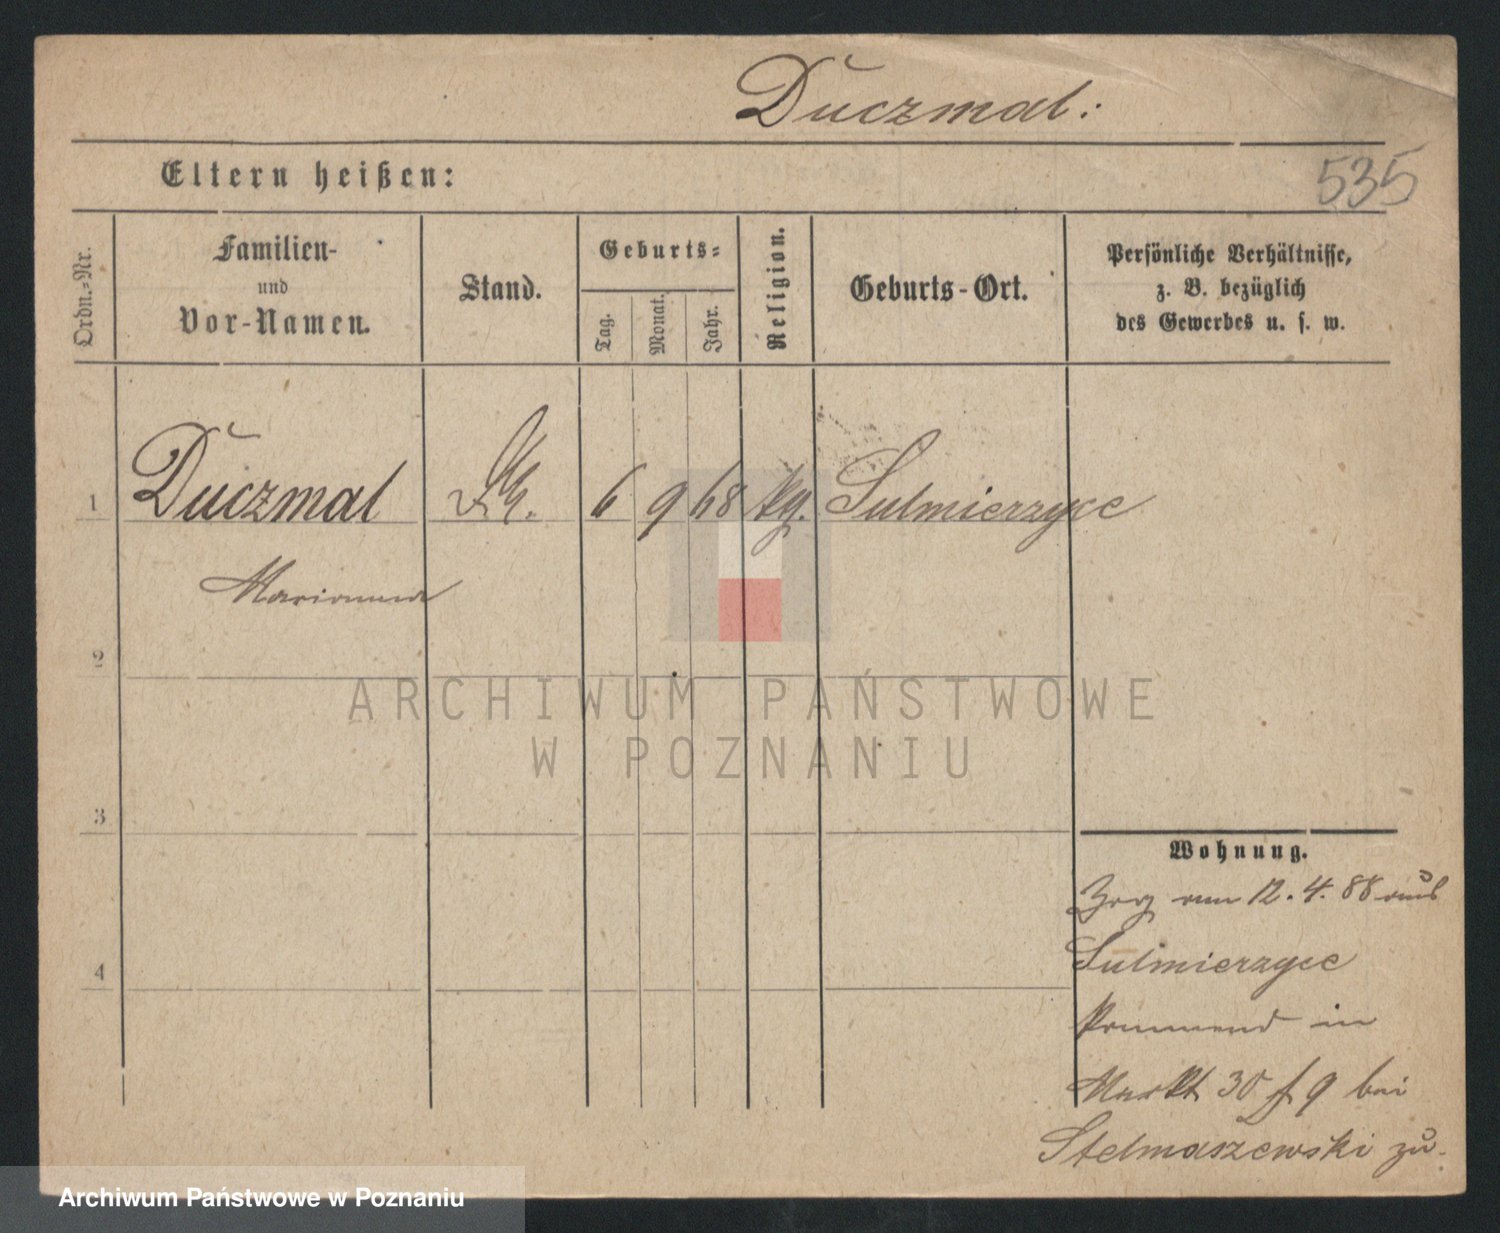 Duczmal:
535
Eltern heißen:
Ordn.-Nr.
Familien-
und
Vor-Namen.
Stand.
Geburts-
Tag.
Monat.
Jahr.
Religion.
Geburts-Ort.
Persönliche Verhältnisse,
z. B. bezüglich
des Gewerbes u. s. w.
1 Duczmal 6 9 68 kg. Sulmierzyce
Marianna
2
3
4
Wohnung.
am 12. 4. 88 aus
Sulmierzyce
kommend in
Markt 30 f 9 bei
Stelmaszewski zu.
ARCHIWUM PAŃSTWOWE
W POZNANIU
Archiwum Państwowe w Poznaniu